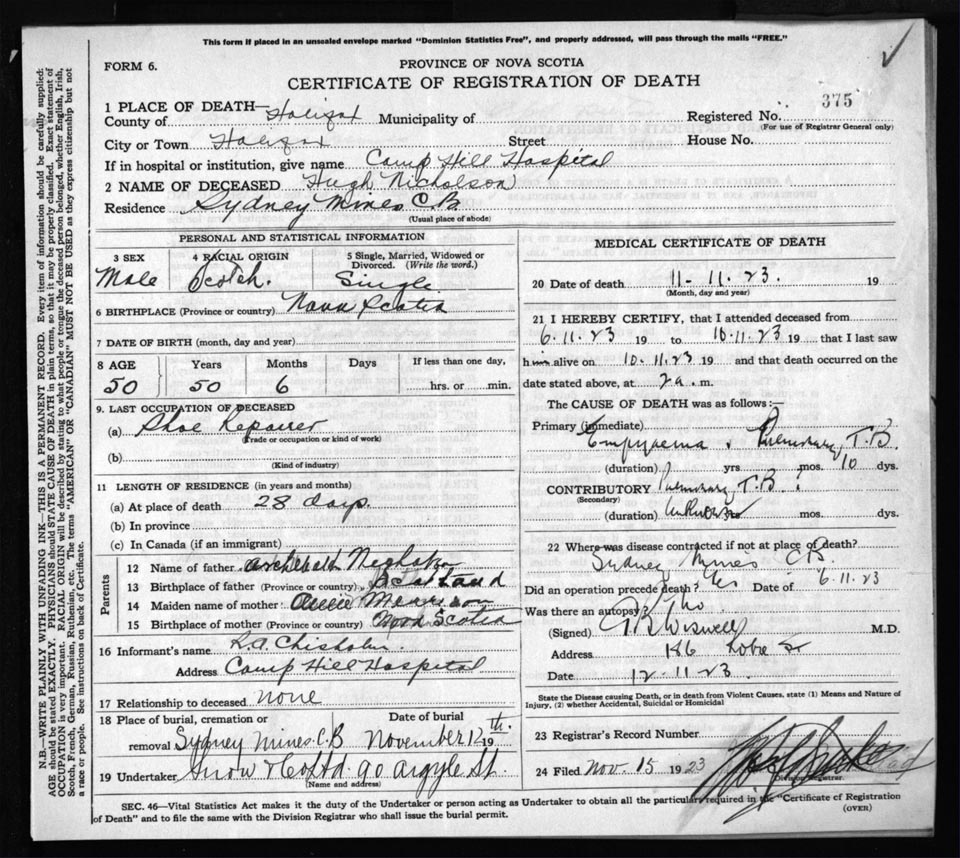 This form if placed in an unsealed envelope marked "Dominion Statistics Free", and properly addressed, will pass through the mails "FREE."
FORM 6.
PROVINCE OF NOVA SCOTIA
CERTIFICATE OF REGISTRATION OF DEATH
375
1 PLACE OF DEATH—
County of Halifax Municipality of Registered No.
(For use of Registrar General only)
City or Town Halifax Street House No.
If in hospital or institution, give name Camp Hill Hospital
2 NAME OF DECEASED Hugh Nicholson
Residence Sydney Mines C.B
(Usual place of abode)
PERSONAL AND STATISTICAL INFORMATION
3 SEX 4 RACIAL ORIGIN 5 Single, Married, Widowed or Divorced. (Write the word.)
Male Scotch. Single
6 BIRTHPLACE (Province or country) Nova Scotia
7 DATE OF BIRTH (month, day and year)
8 AGE Years Months Days If less than one day,
50 50 6 hrs. or min.
9. LAST OCCUPATION OF DECEASED
(a) Shoe Repairer
(Trade or occupation or kind of work)
(b)
(Kind of industry)
11 LENGTH OF RESIDENCE (in years and months)
(a) At place of death 28 days.
(b) In province
(c) In Canada (if an immigrant)
Parents
12 Name of father Archibald
13 Birthplace of father (Province or country) Scotland
14 Maiden name of mother
15 Birthplace of mother (Province or country) Nova Scotia
16 Informant's name R.A. Chisholm
Address Camp Hill Hospital
17 Relationship to deceased none
18 Place of burial, cremation or removal Date of burial
Sydney Mines C.B November 12th 19
19 Undertaker Snow & Co Ltd 90 Argyle St.
(Name and address)
MEDICAL CERTIFICATE OF DEATH
20 Date of death 11-11.23 19
(Month, day and year)
21 I HEREBY CERTIFY, that I attended deceased from
6.11.23 19 to 10.11.23 19 that I last saw
him alive on 10.11.23 19 and that death occurred on the
date stated above, at 2 a. m.
The CAUSE OF DEATH was as follows:—
Primary (immediate)
Empyaema & Pulmonary T.B.
(duration) yrs mos. 10 dys.
CONTRIBUTORY Pulmonary T.B.
(Secondary)
(duration) Unknown mos. dys.
22 Where was disease contracted if not at place of death?
Sydney Mines C.B.
Did an operation precede death? Yes Date of 6.11.23
Was there an autopsy? No
(Signed) Wiswell M.D.
Address 186 St
Date 12.11.23
State the Disease causing Death, or in death from Violent Causes, state (1) Means and Nature of Injury, (2) whether Accidental, Suicidal or Homicidal
23 Registrar's Record Number
24 Filed Nov. 15 1923
Division Registrar.
SEC. 46—Vital Statistics Act makes it the duty of the Undertaker or person acting as Undertaker to obtain all the particulars required in the "Certificate of Registration
of Death" and to file the same with the Division Registrar who shall issue the burial permit. (OVER)
N.B.—WRITE PLAINLY WITH UNFADING INK—THIS IS A PERMANENT RECORD. Every item of information should be carefully supplied:
AGE should be stated EXACTLY. PHYSICIANS should STATE CAUSE OF DEATH in plain terms, so that it may be properly classified. Exact statement of
OCCUPATION is very important. RACIAL ORIGIN will be described by stating to what people or tongue the deceased person belonged, whether English, Irish,
Scotch, French, German, Russian, Ruthenian, etc. The terms "AMERICAN" OR "CANADIAN" MUST NOT BE USED as they express citizenship but not
a race or people. See instructions on back of Certificate.